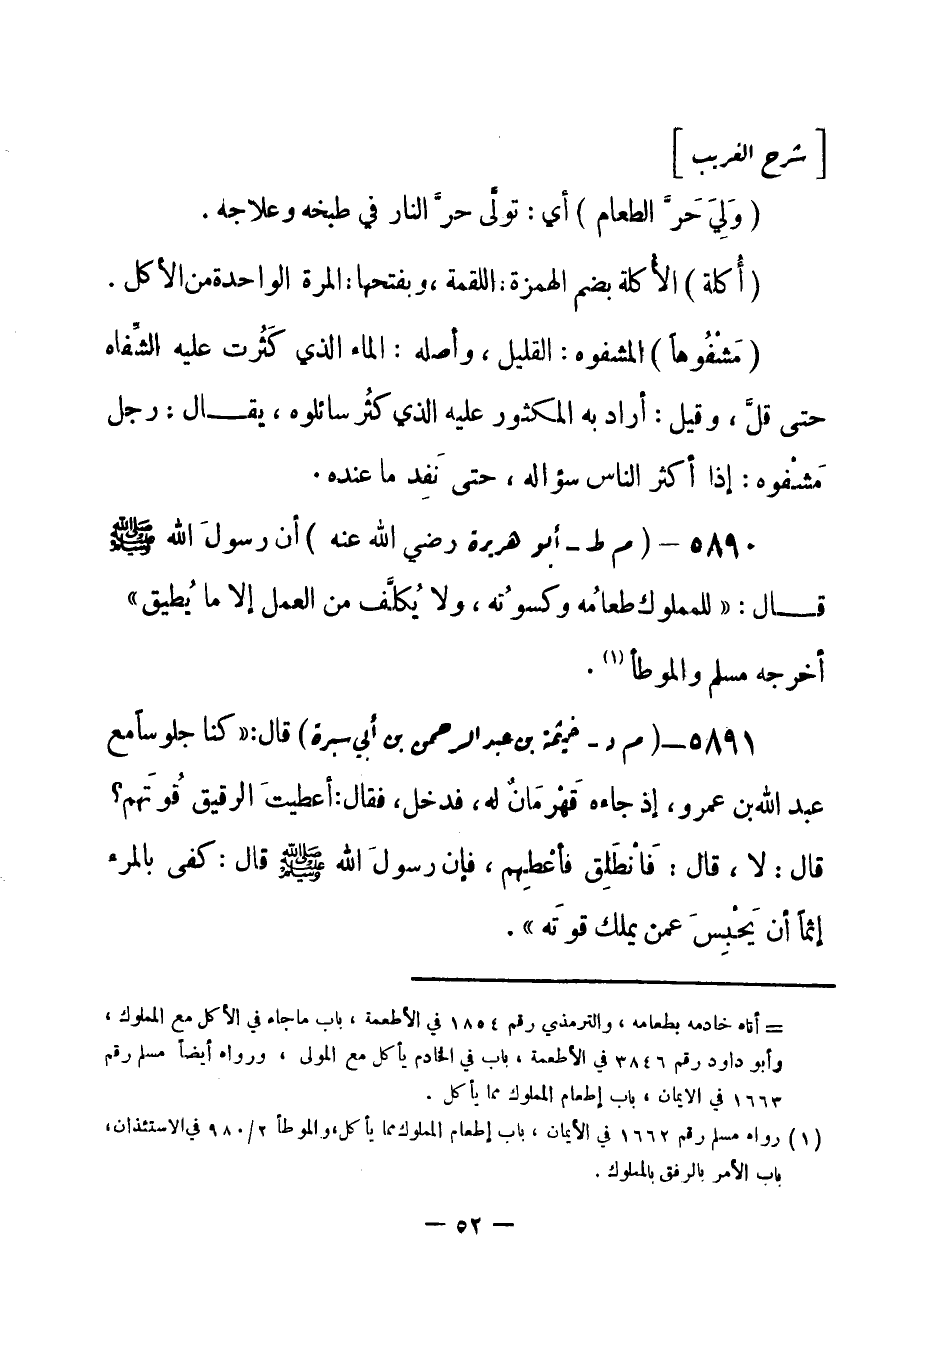 [ شرح الغريب ]
( وَلِيَ حَرَّ الطعام ) أي : تولَّى حرَّ النار في طبخه وعلاجه .
( أُكلة ) الأُكلة بضم الهمزة : اللقمة ، وبفتحها : المرة الواحدة من الأكل .
( مَشْفُوهاً ) المشفوه : القليل ، وأصله : الماء الذي كَثُرت عليه الشِّفاه
حتى قلَّ ، وقيل : أراد به المكثور عليه الذي كثُر سائلوه ، يقـــال : رجل
مَشْفوه : إذا أكثر الناس سؤاله ، حتى نَفِد ما عنده .
٥٨٩٠ – ( م ط – أبو هريرة رضي الله عنه ) أن رسولَ الله ﷺ
قـــال : « للمملوك طعامُه وكسوتُه ، ولا يُكلَّف من العمل إلا ما يُطيق »
أخرجه مسلم والموطأ (١) .
٥٨٩١ – ( م د – خيثمة بن عبد الرحمن بن أبي سبرة ) قال : « كنا جلوساً مع
عبد الله بن عمرو ، إذ جاءه قَهْرَمَانٌ له ، فدخل ، فقال : أعطيتَ الرقيق قُوتَهم ؟
قال : لا ، قال : فَانْطَلِق فأَعْطِهم ، فإن رسولَ الله ﷺ قال : كفى بالمرء
إثماً أن يَحْبِسَ عمن يملك قوتَه » .
= أتاه خادمه بطعامه ، والترمذي رقم ١٨٥٤ في الأطعمة ، باب ماجاء في الأكل مع المملوك ،
وأبو داود رقم ٣٨٤٦ في الأطعمة ، باب في الخادم يأكل مع المولى ، ورواه أيضاً مسلم رقم
١٦٦٣ في الايمان ، باب إطعام المملوك مما يأكل .
(١) رواه مسلم رقم ١٦٦٢ في الأيمان ، باب إطعام المملوك مما يأكل ، والموطأ ٩٨٠/٢ في الاستئذان ،
باب الأمر بالرفق بالمملوك .
– ٥٢ –